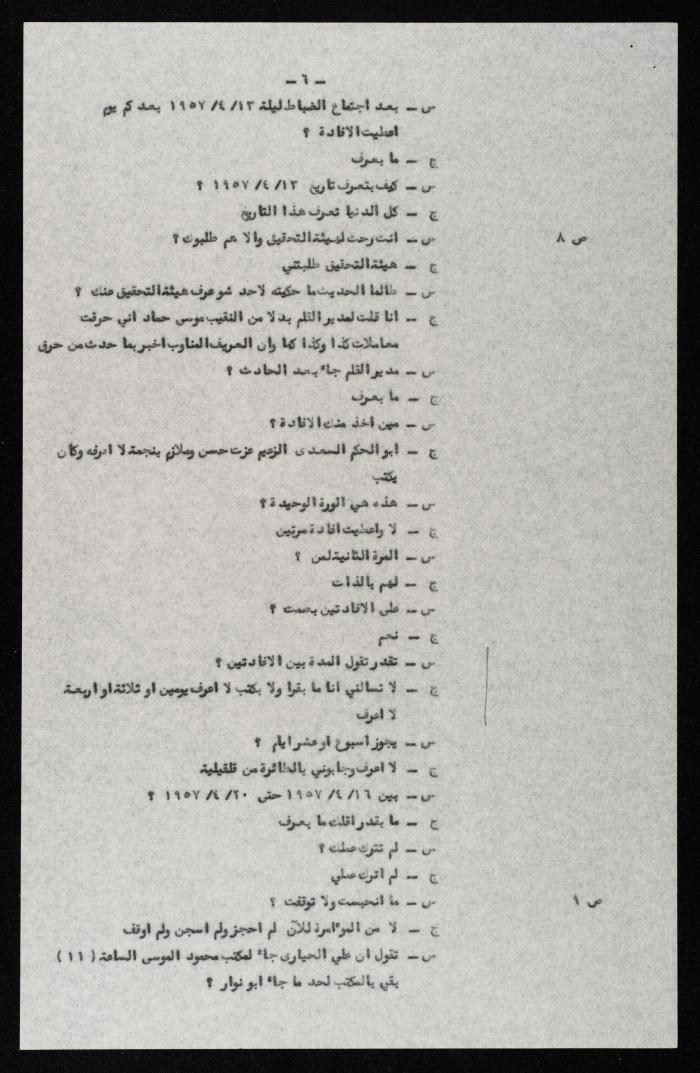 - ٦ -
س - بعد اجتماع الضباط ليلة ١٣/ ٤/ ١٩٥٧ بعد كم يوم
اعطيت الافادة ؟
ج - ما بعرف
س - كيف بتعرف تاريخ ١٣/ ٤/ ١٩٥٧ ؟
ج - كل الدنيا تعرف هذا التاريخ
س - انت رحت لهيئة التحقيق والا هم طلبوك ؟
ص ٨
ج - هيئة التحقيق طلبتني
س - طالما الحديث ما حكيته لاحد شو عرف هيئة التحقيق عنك ؟
ج - انا قلت لمدير القلم بدلا من النقيب موسى حماد اني حرقت
معاملات كذا وكذا كما وان العريف المناوب اخبر بما حدث من حرق
س - مدير القلم جاء بعد الحادث ؟
ج - ما بعرف
س - مين اخذ منك الافادة ؟
ج - ابو الحكم السعدى الزعيم عزت حسن وملازم بنجمة لا اعرفه وكان
يكتب
س - هذه هي الورة الوحيدة ؟
ج - لا واعطيت افادة مرتين
س - المرة الثانية لمن ؟
ج - لهم بالذات
س - على الافادتين بصمت ؟
ج - نعم
س - تقدر تقول المدة بين الافادتين ؟
ج - لا تسالني انا ما بقرا ولا بكتب لا اعرف يومين او ثلاثة او اربعة
لا اعرف
س - يجوز اسبوع او عشر ايام ؟
ج - لا اعرف وجابوني بالطائرة من قلقيلية
س - بين ١٦/ ٤/ ١٩٥٧ حتى ٢٠/ ٤/ ١٩٥٧ ؟
ج - ما بقدر اقلك ما بعرف
س - لم تترك عملك ؟
ج - لم اترك عملي
س - ما انحبست ولا توقفت ؟
ص ٩
ج - لا من الموءامرة للآن لم احجز ولم اسجن ولم اوقف
س - تقول ان علي الحيارى جاء لمكتب محمود الموسى الساعة ( ١١ )
بقي بالمكتب لحد ما جاء ابو نوار ؟